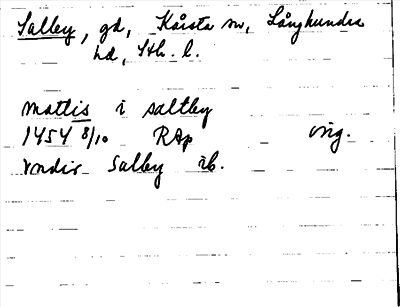 Salley, gd, Kårsta sn, Långhundra
hd, Sth. l.
mattis i saltby
1454 8/10 RAp orig.
vndir Salby ib.